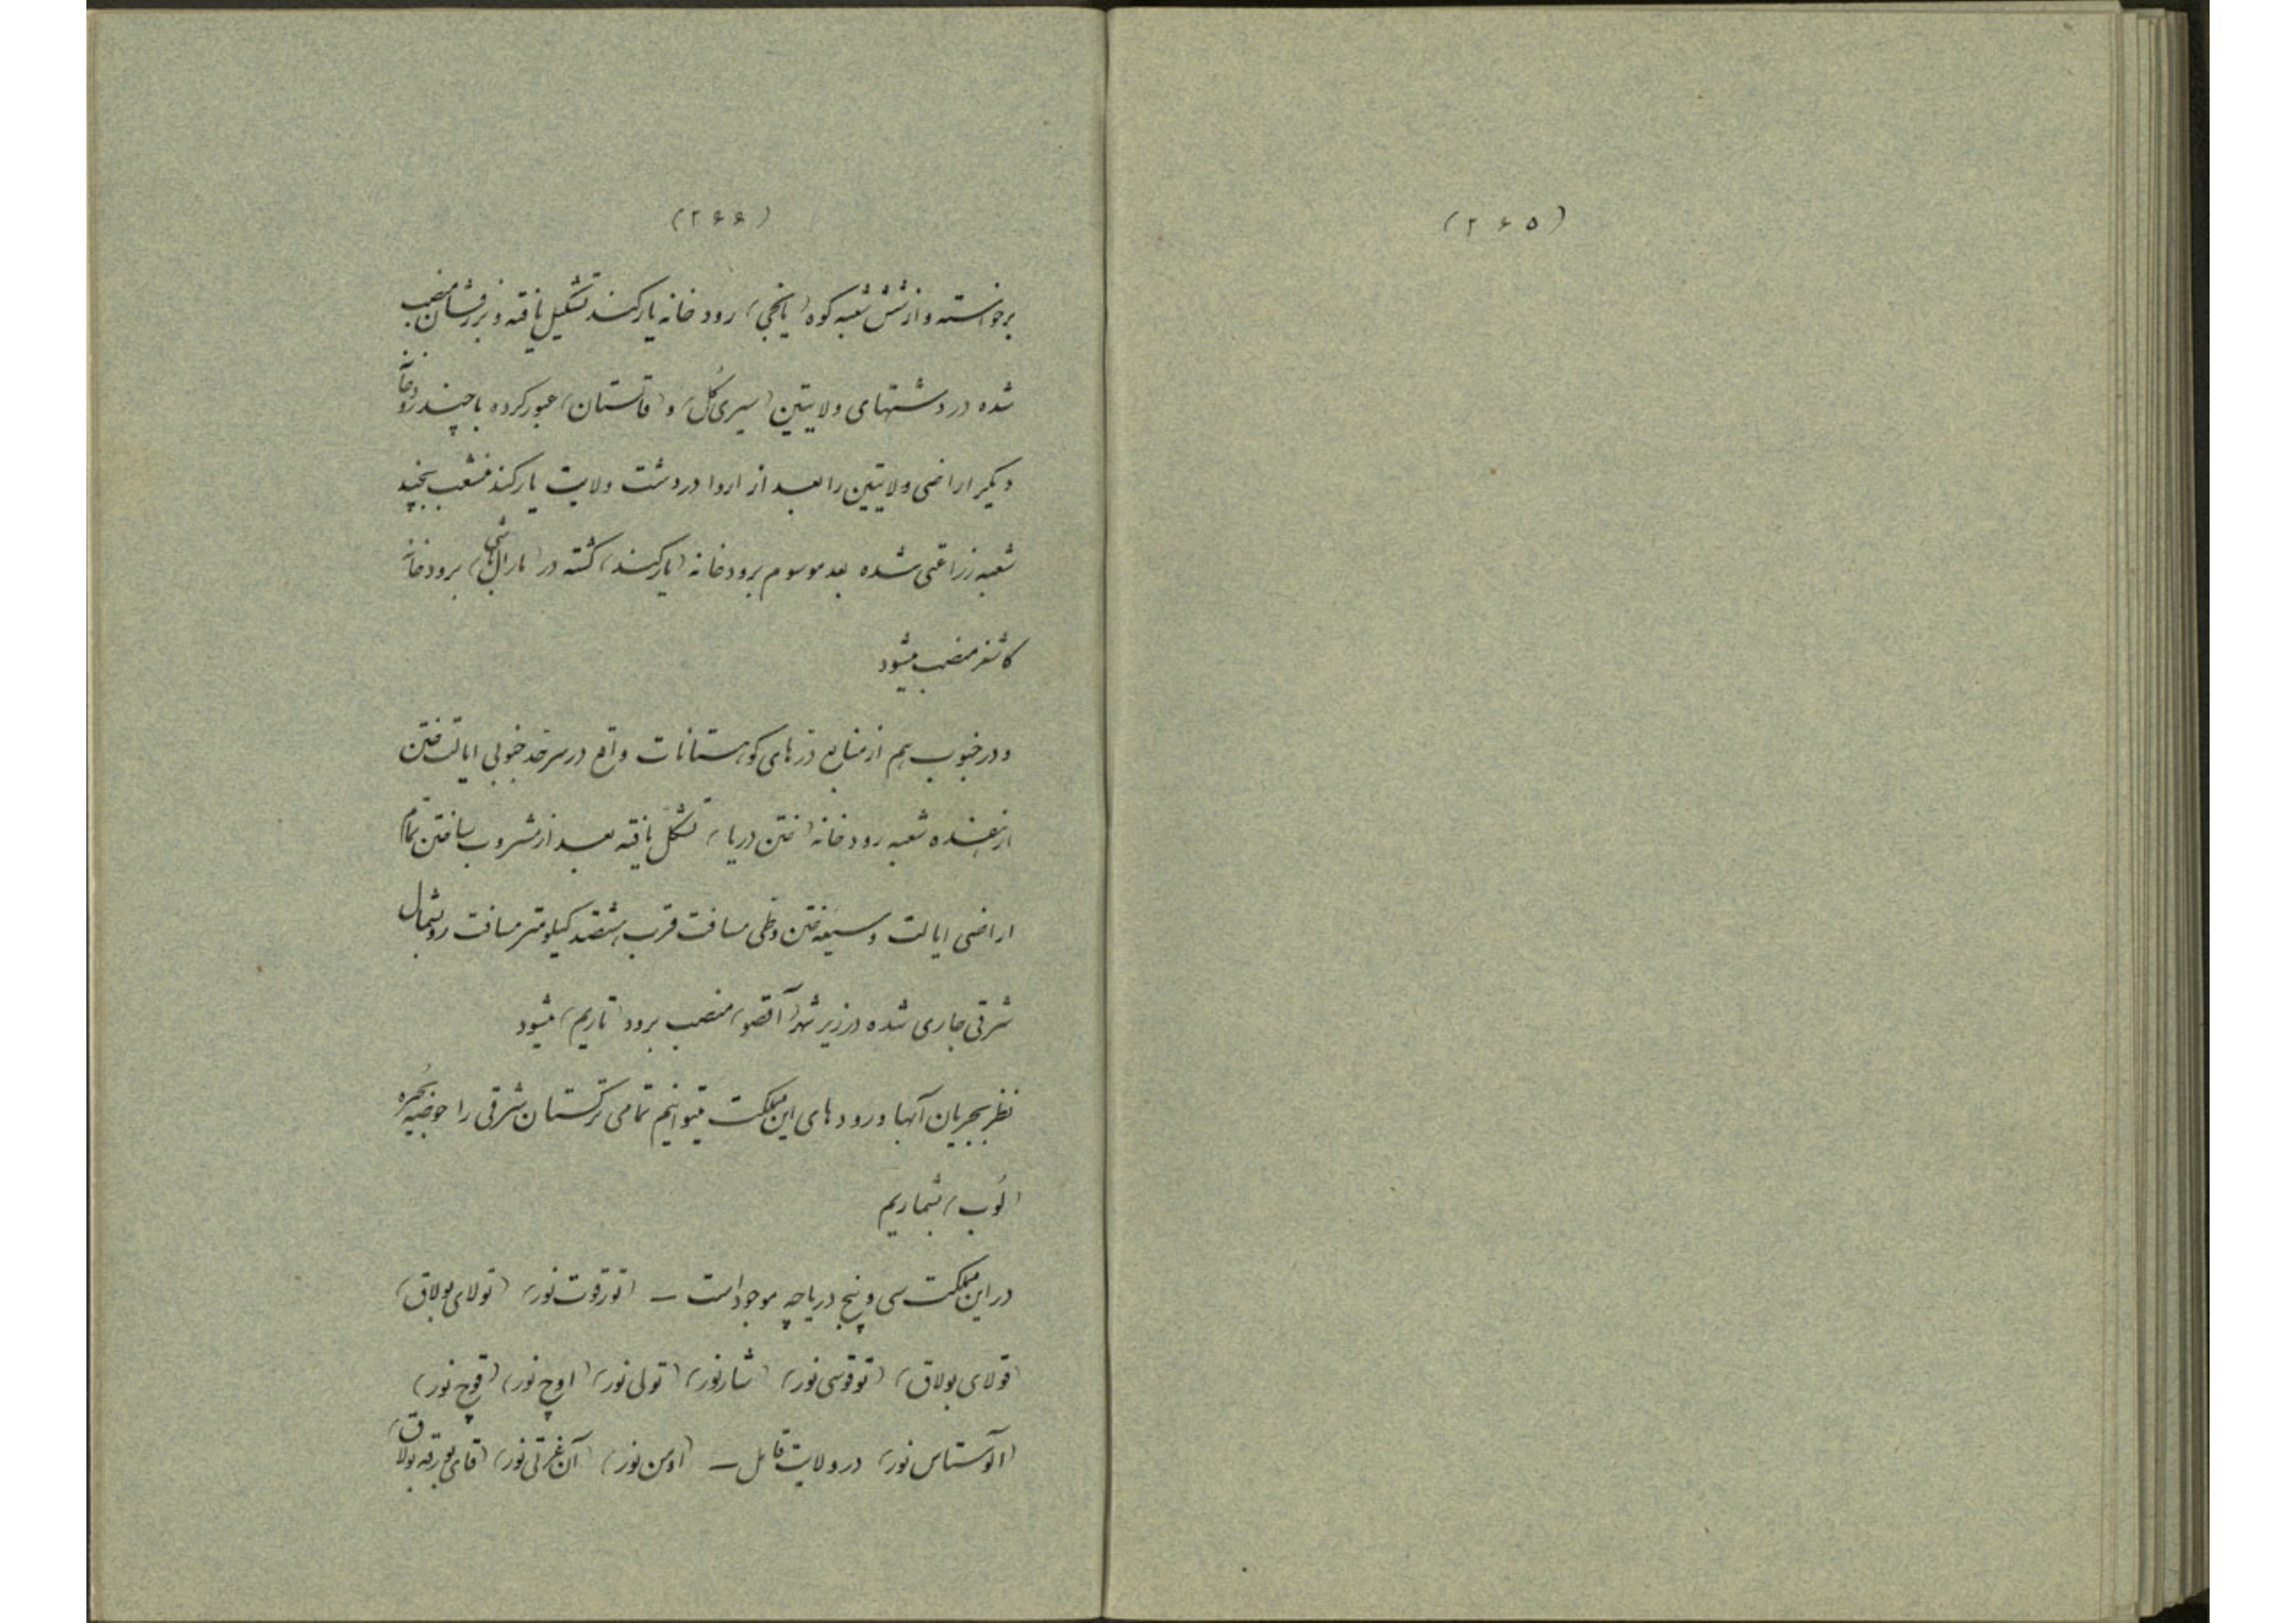 (۲۶۵)
(۲۶۶)
برخواسته و از شش شعبه کوه (یانجی) رودخانه یارکند تشکیل یافته و بزرفشان منصب
شده در دشتهای ولایتین (سیری کُل) و (قاتستان) عبور کرده با چند رودخانه
دیگر اراضی ولایتین را بعد از اروا در دشت ولایت یارکند منشعب بچند
شعبه زراعتی شده بعد موسوم برودخانه (یارکند) گشته در (مارال باشی) برودخانه
کاشغر منصب میشود
و در جنوب هم از منابع دَرهای کوهستانات واقع در سرحد جنوبی ایالت ختن
از هفده شعبه رودخانه (ختن دریا) تشکل یافته بعد از مشروب ساختن تمام
اراضی ایالت وسیعهٔ ختن و طی مسافت قرب هشتصد کیلومتر مسافت رو بشمال
شرقی جاری شده در زیر شهر (آقصو) منصب برود (تاریم) میشود
نظر بجریان آبها و رودهای این مملکت میتوانیم تمامی ترکستان شرقی را حوضیه بُحیره
(لُوب) بشماریم
در این مملکت سی و پنج دریاچه موجود است – (توزقوت نور) (تولای بولاق)
(قولای بولاق) (توقوسی نور) (شارنور) (تولی نور) (اوچ نور) (قوچ نور)
(آلوستاس نور) در ولایت قابل – (اومن نور) (آن غرتی نور) (قای بورقه بولاق)